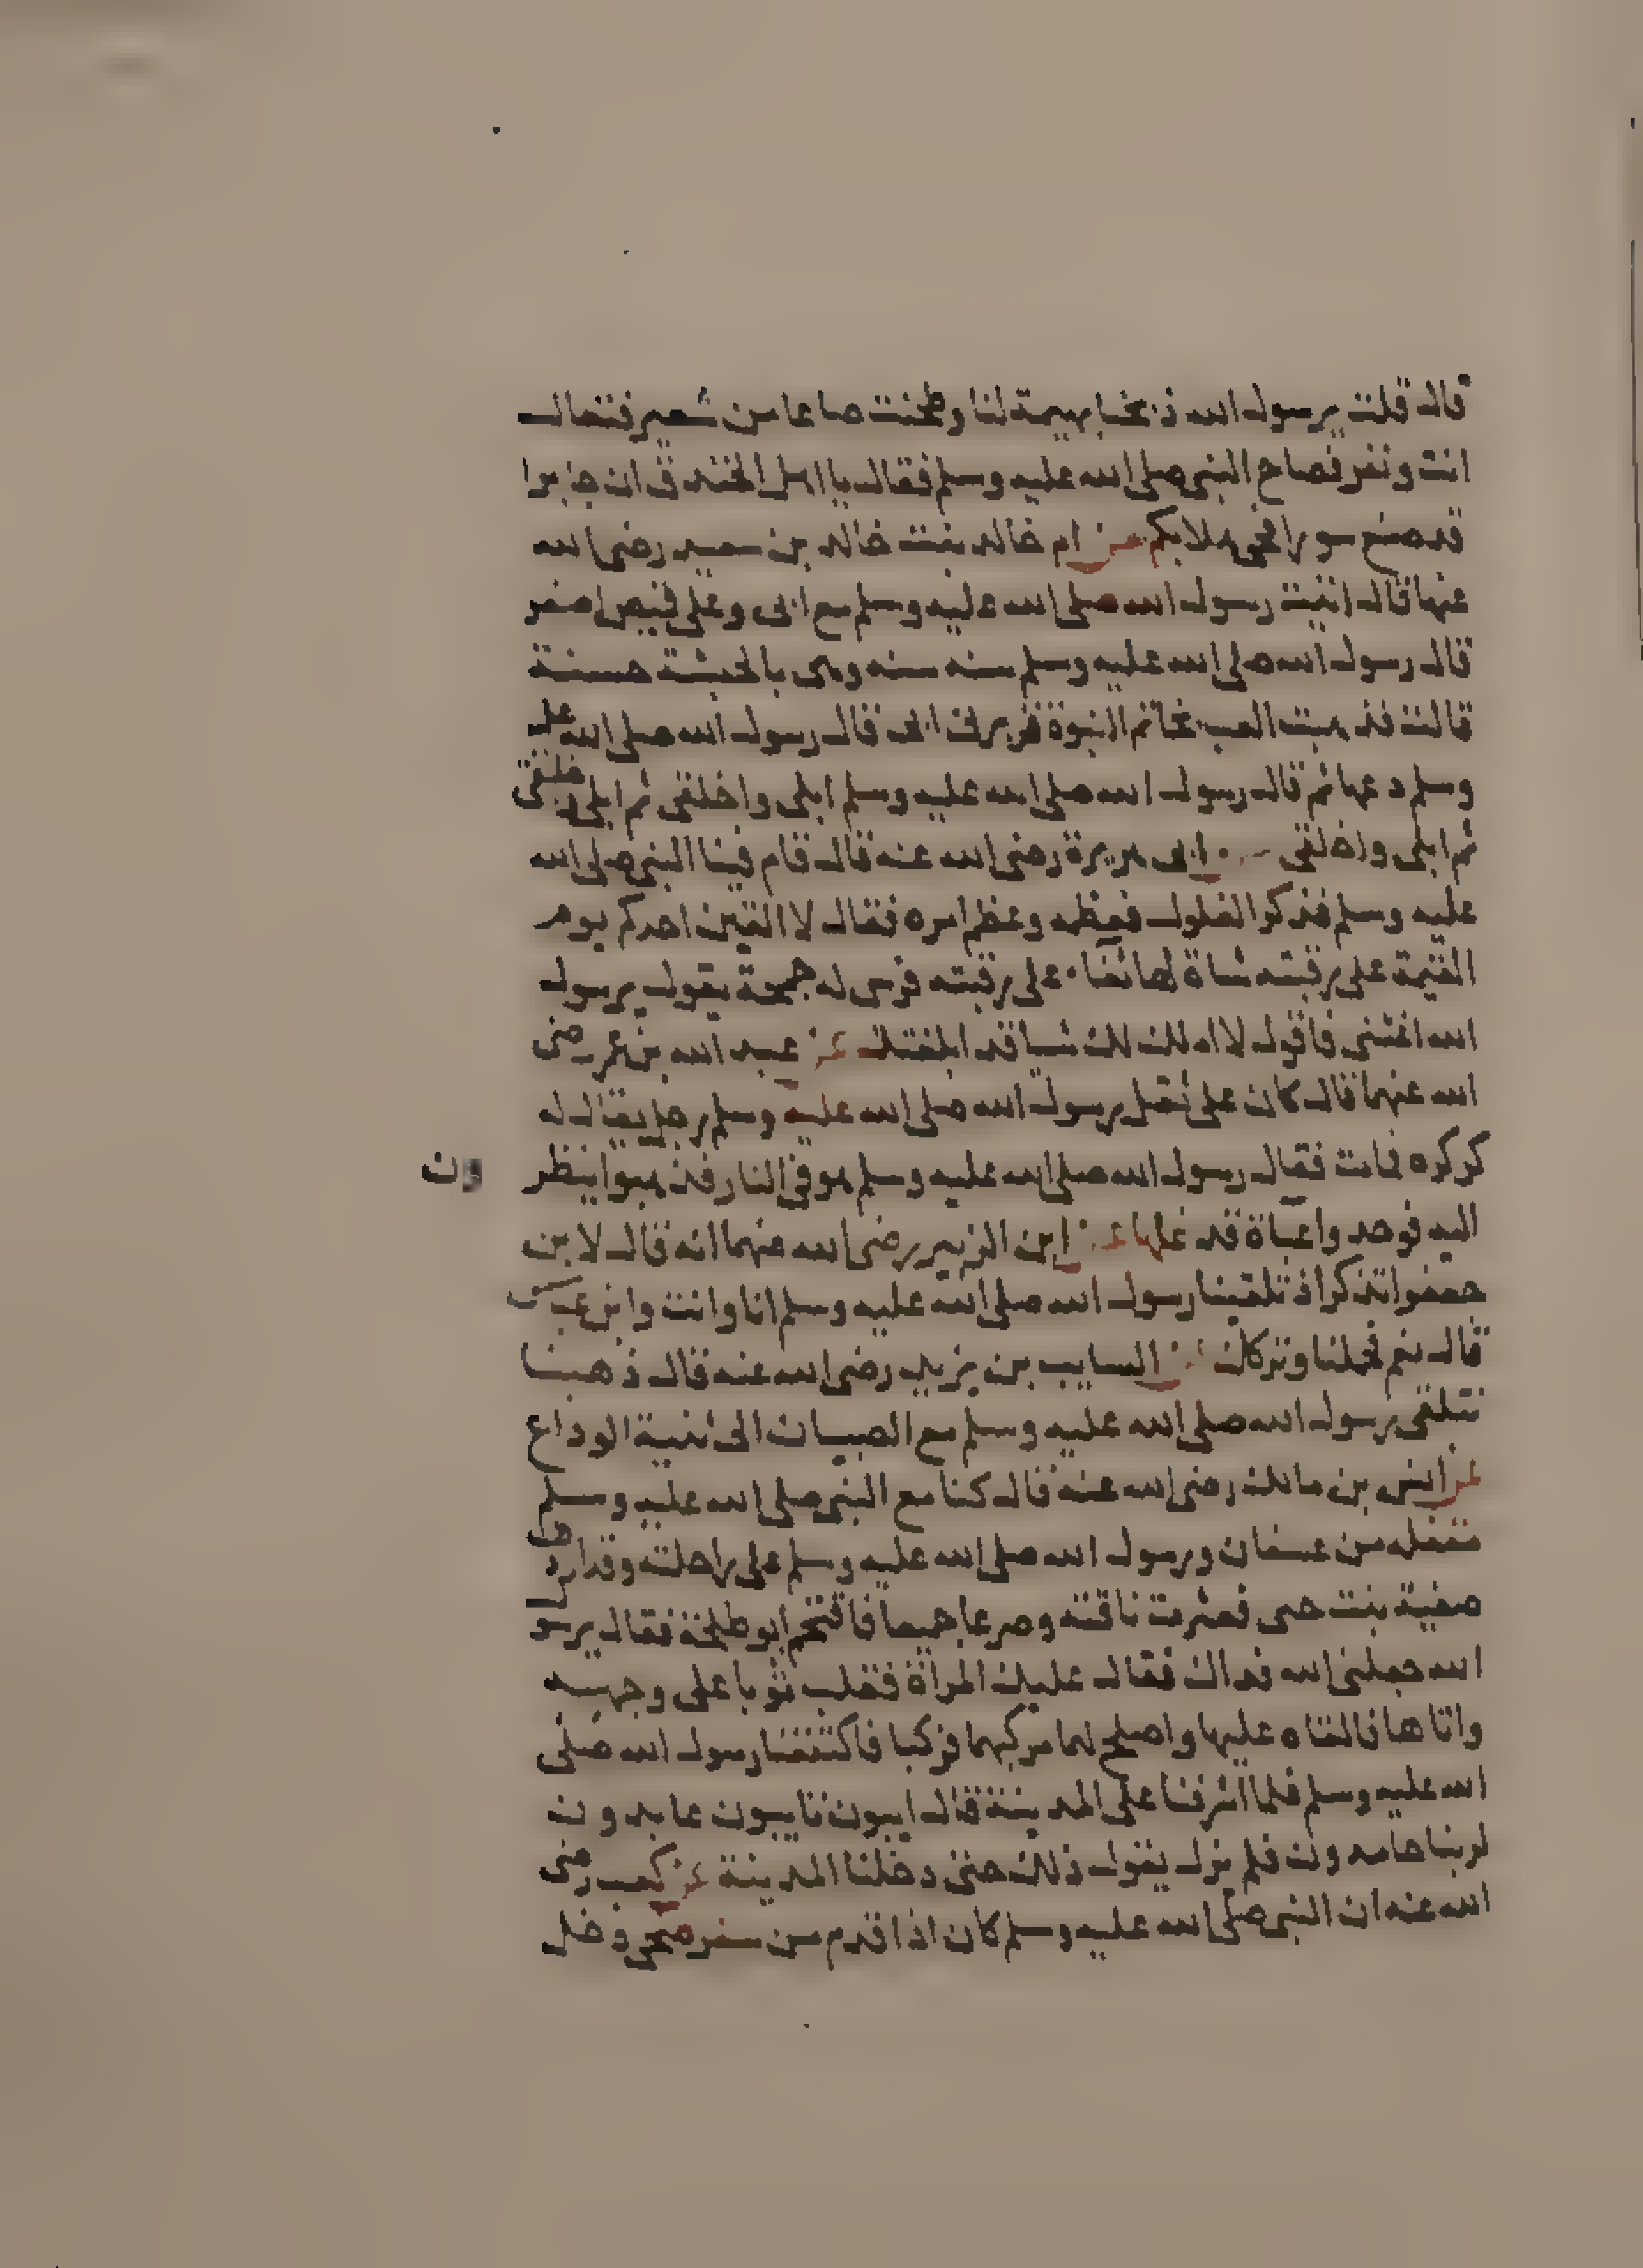 قال قلت يرسول الله ذبحنا بهيمة لنا وطحنت صاعا من شعير فتعال
انت ونفر فصاح النبى صلى الله عليه وسلم فقال يا اهل الخندق ان جابرا
قد صنع سورا فحى هلا بكم عن ام خالد بنت خالد بن سعيد رضى الله
عنها قالت اتيت رسول الله صلى الله عليه وسلم مع ابى وعلى قميص اصفر
قال رسول الله صلى الله عليه وسلم سنه سنه وهى بالحبشة حسنة
قالت فذهبت العب بخاتم النبوة فزبرنى ابى قال رسول الله صلى الله عليه
وسلم دعها ثم قال رسول الله صلى الله عليه وسلم ابلى واخلقى ثم ابلى واخلقى
ثم ابلى واخلقى عن ابى هريرة رضى الله عنه قال قام فينا النبى صلى الله
عليه وسلم فذكر الغلول فعظمه وعظم امره فقال لا القين احدكم يوم
القيمة على رقبته شاة لها ثغا على رقبته فرس له حمحمة يقول يرسول
الله اغثنى فاقول لا املك لك شيا قد ابلغتك عن عبد الله بن عمر رضى
الله عنهما قال كان على ثقل رسول الله صلى الله عليه وسلم رجل يقال له
كركره فمات فقال رسول الله صلى الله عليه وسلم هو فى النار فذهبوا ينظر
ون
اليه فوجدوا عباة قد غلها عن ابن الزبير رضى الله عنهما انه قال لابن
جعفر اتذكر اذ تلقينا رسول الله صلى الله عليه وسلم انا وانت وابن عباس
قال نعم فحملنا وتركك عن السايب بن يزيد رضى الله عنه قال ذهبنا
نتلقى رسول الله صلى الله عليه وسلم مع الصبيان الى ثنية الوداع
عن انس بن مالك رضى الله عنه قال كنا مع النبى صلى الله عليه وسلم
مقفله من عسفان ورسول الله صلى الله عليه وسلم على راحلته وقد اردف
صفية بنت حيى فعثرت ناقته وصرعا جميعا فاقتحم ابو طلحة فقال يرسول
الله جعلنى الله فداك فقال عليك المراة فقلب ثوبا على وجهه
واتاها فالقاه عليها واصلح لهما مركبهما فركبا فاكتنفنا رسول الله صلى
الله عليه وسلم فلما اشرفنا على المدينة قال ايبون تايبون عابدون
لربنا حامدون فلم يزل يقول ذلك حتى دخلنا المدينة عن كعب رضى
الله عنه ان النبى صلى الله عليه وسلم كان اذا قدم من سفر ضحى دخل